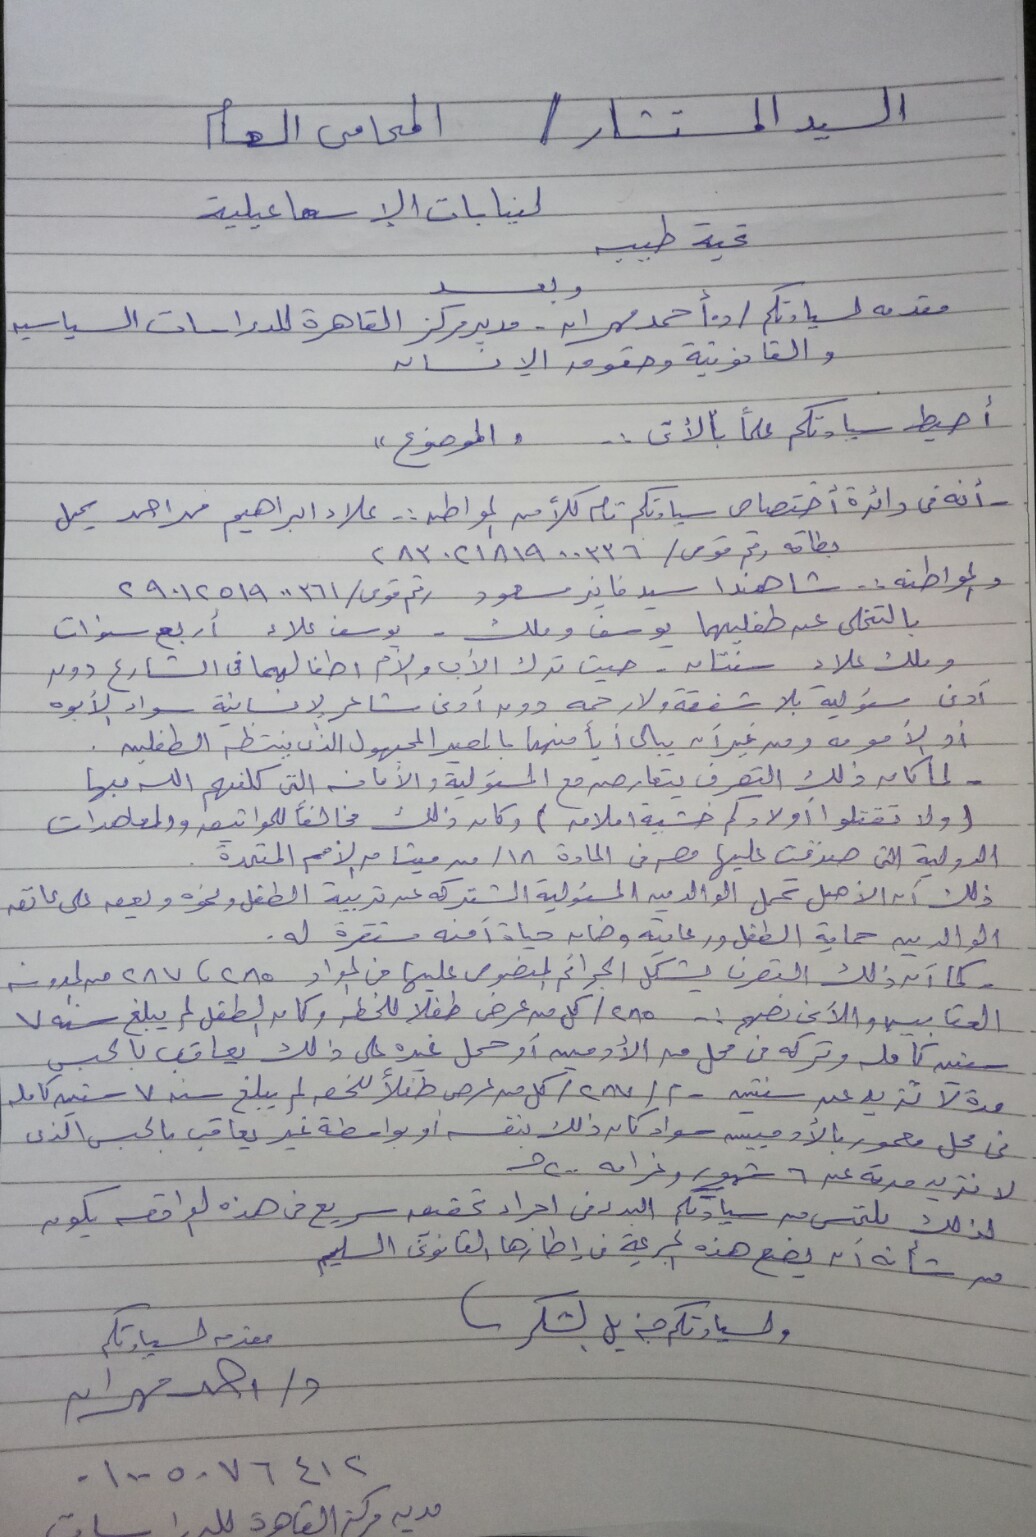 السيد المستشار / المحامى العام
لنيابات الإسماعيلية
تحية طيبه
وبعد
مقدمه لسيادتكم / د. أحمد مهران - مدير مركز القاهرة للدراسات السياسيه
والقانونية وحقوق الإنسان
أحيط سيادتكم علماً بالأتى :- " الموضوع "
- أنه فى دائرة أختصاص سيادتكم قام كلاً من المواطن :- علاء ابراهيم محمد احمد يحمل
بطاقه رقم قومى /
والمواطنه :- شاهندا سيد فايز مسعود رقم قومى /
بالتخلى عن طفليهما يوسف وملك - يوسف علاء أربع سنوات
وملك علاء سنتان - حيث ترك الأب والأم اطفالهما فى الشارع دون
أدنى مسئولية بلا شفقة ولا رحمه دون أدنى مشاعر لإنسانية سواء الأبوه
أو الأمومه ومن غير أن يبالى أياً منهما بالمصير المجهول الذى ينتظر الطفلين .
- لما كان ذلك التصرف يتعارض مع المسئولية والأمانه التى كلفهم الله بها
( ولا تقتلوا أولادكم خشية املاق ) وكان ذلك مخالفاً للمواثيق والمعاهدات
الدولية التى صدقت عليها مصر فى المادة ١٨/ من ميثاق الأمم المتحدة .
ذلك أن الأصل تحمل الوالدين المسئولية المشتركه عن تربية الطفل ونموه ويقع على عاتق
الوالدين حماية الطفل ورعايته وضمان حياة أمنه مستقرة له .
- كما أن ذلك التصرف يشكل الجرائم المنصوص عليها فى المواد ٢٨٥ ، ٢٨٧ من المدونه
العقابيه والأتى نصهم :- ٢٨٥/ كل من عرض طفلاً للخطر وكان الطفل لم يبلغ سنه ٧
سنين كامله وتركه فى محل من الأدميين أو حمل غيره على ذلك يعاقب بالحبس
مدة لا تزيد عن سنتين - ٢ / ٢٨٧ / كل من عرض طفلاً للخطر لم يبلغ سنه ٧ سنين كامله
فى محل معمور بالأدميين سواء كان ذلك بنفسه أو بواسطة غيره يعاقب بالحبس الذى
لا تزيد مدته عن ٦ شهور وغرامه ٢٠٠ ج
لذلك نلتمس من سيادتكم البدء فى اجراء تحقيق سريع فى هذه الواقعه يكون
من شأنه أن يضع هذه الجريمة فى إطارها القانونى السليم
ولسيادتكم جزيل الشكر
مقدمه لسيادتكم
د/ احمد مهران
مدير مركز القاهرة للدراسات